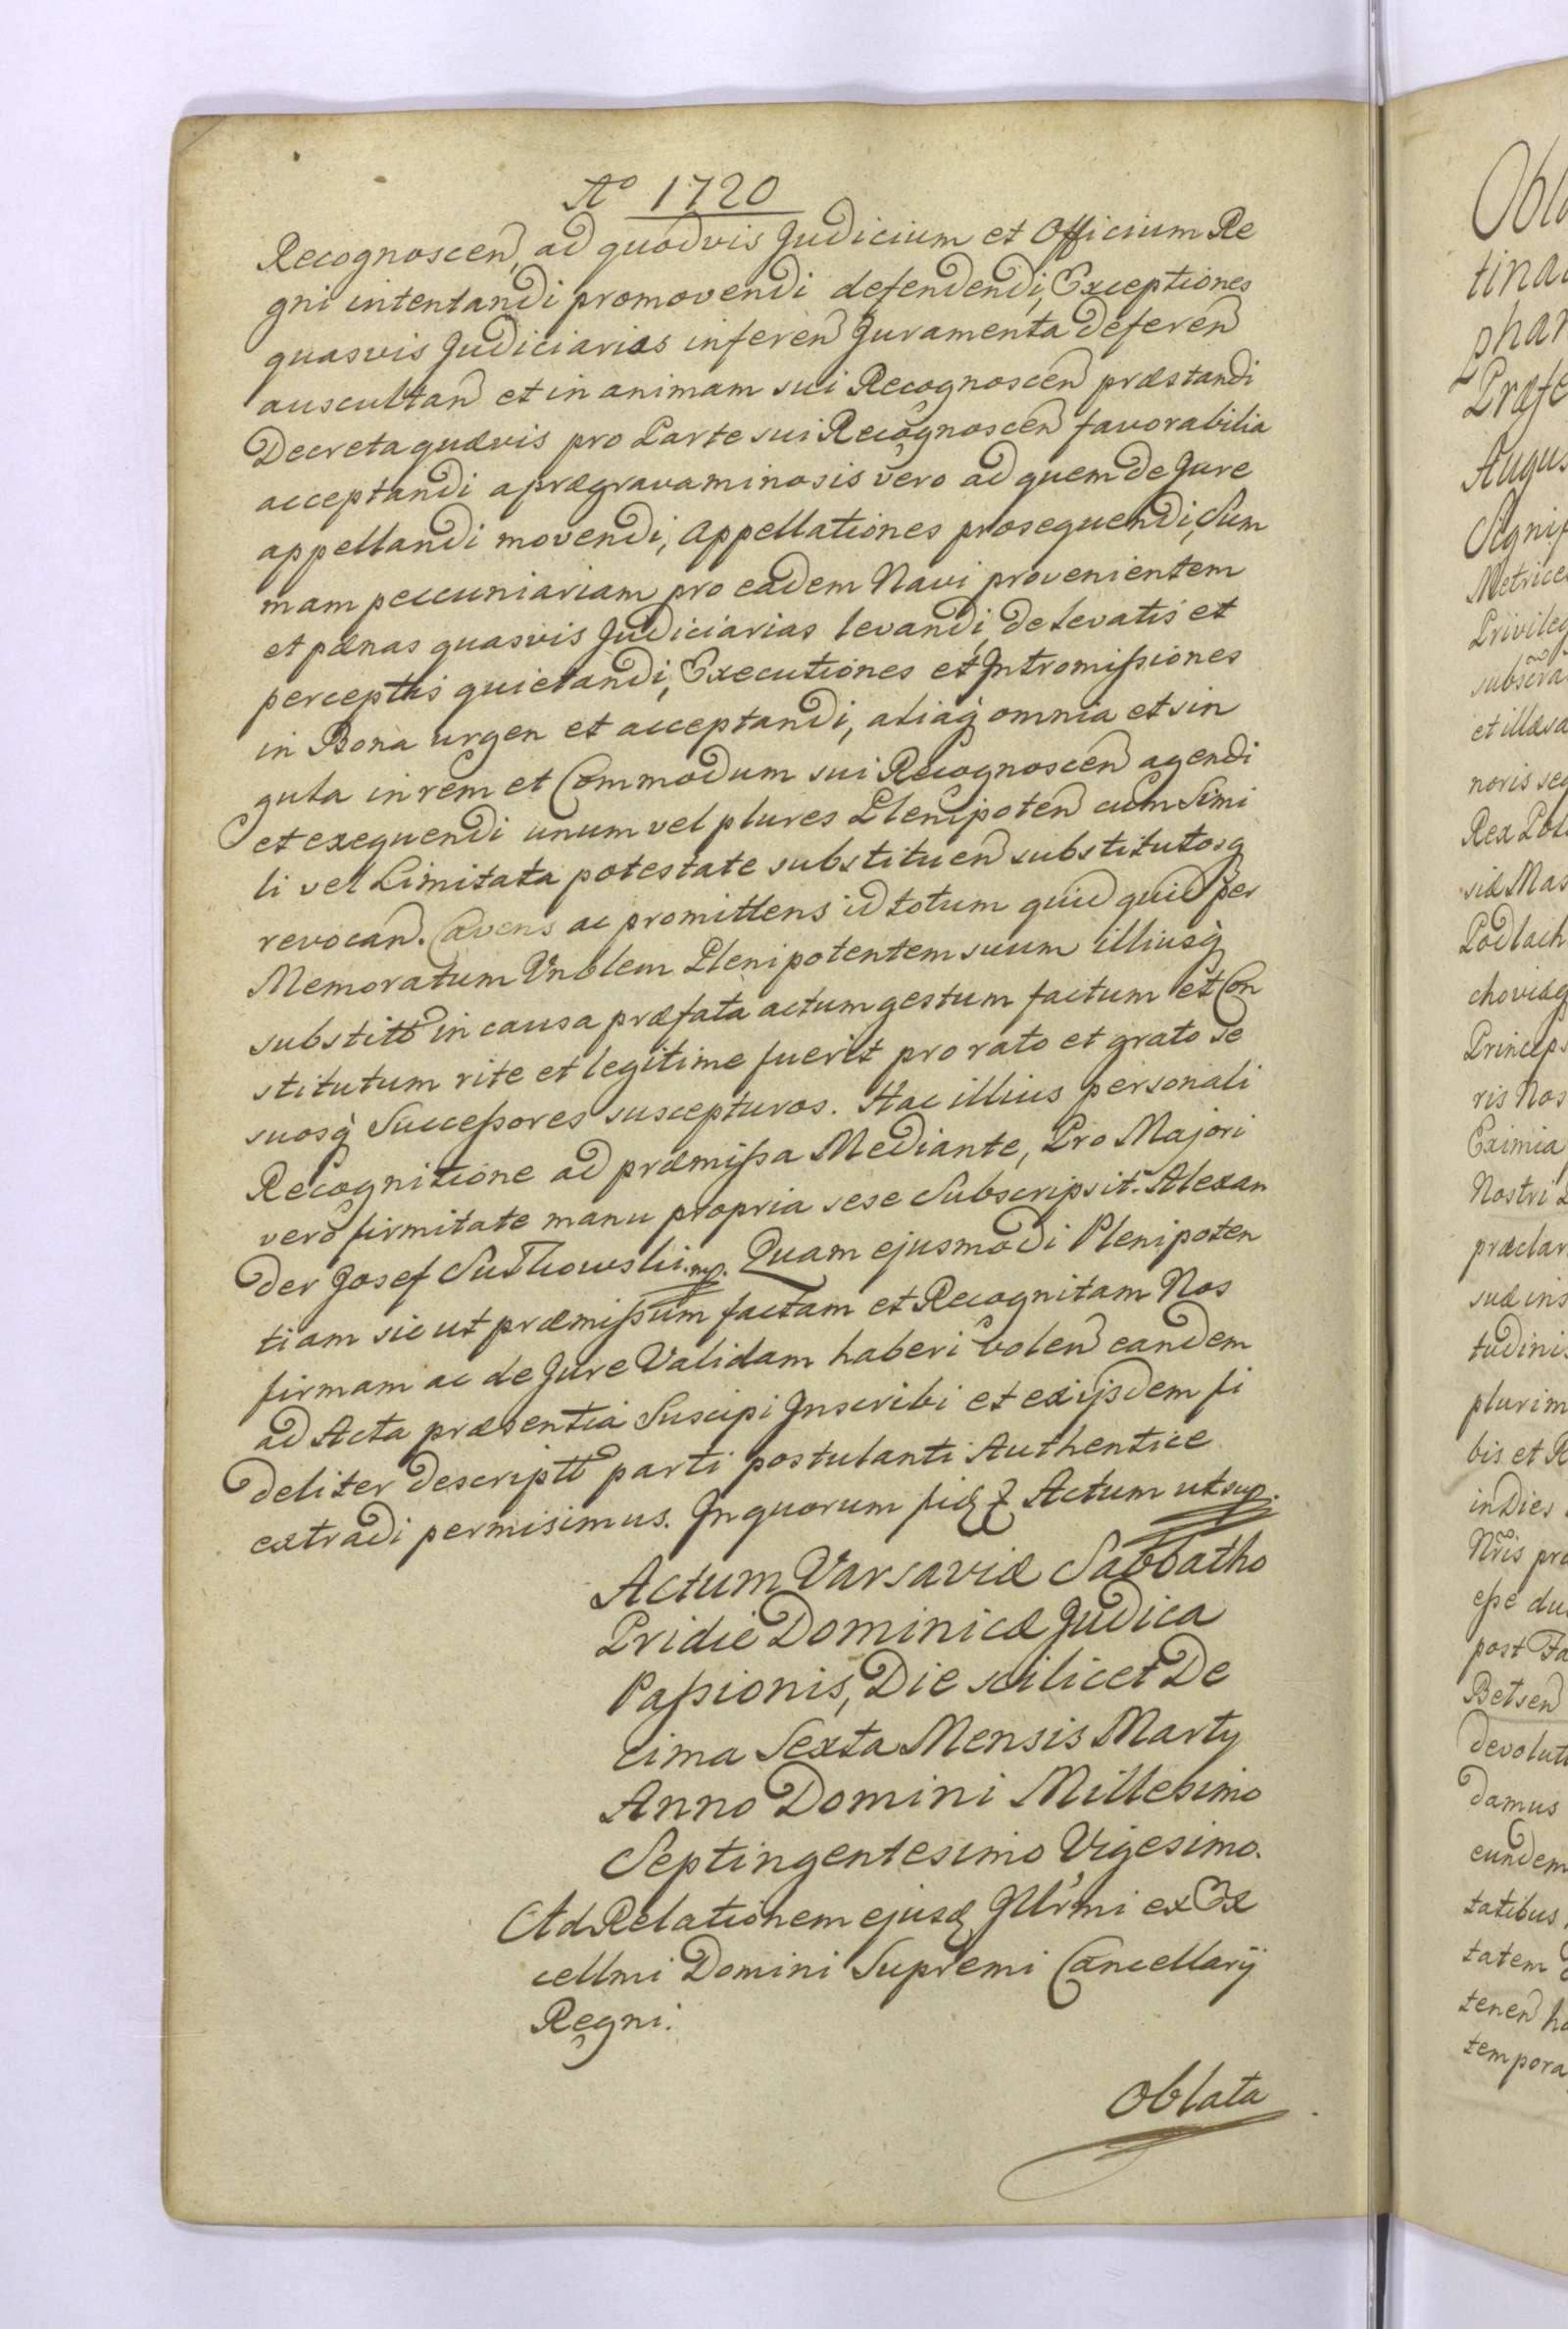 Aº 1720
Recognoscen, ad quodvis Judicium et Officium Re
gni intentandi promovendi defendendi, Exceptiones
quasvis Judiciarias inferen Juramenta deferen
auscultan et in animam sui Recognoscen præstandi
Decreta quævis pro Parte sui Recognoscen favorabilia
acceptandi a prægravaminosis vero ad quem de Jure
appellandi movendi, Appellationes prosequendi, Sum
mam peccuniariam pro eadem Navi provenientem
et pænas quasvis Judiciarias levandi, de levatis et
perceptis quietandi, Executiones et Intromissiones
in Bona urgen et acceptandi, aliaq omnia et sin
gula in rem et Commodum sui Recognoscen agendi
et exequendi unum vel plures Plenipoten cum Simi
li vel Limitata potestate substituen substitutosq
revocan. Cavens ac promittens id totum quid quid per
Memoratum Vnblem Plenipotentem suum illiusq
substitt in causa præfata actum gestum factum et Con
stitutum rite et legitime fuerit pro rato et grato se
suosq Successores suscepturos. Hac illius personali
Recognitione ad præmissa Mediante, Pro Majori
vero firmitate manu propria sese Subscripsit. Alexan
der Josef Sułkowski mp. Quam ejusmodi Plenipoten
tiam sic ut præmissum factam et Recognitam Nos
firmam ac de Jure Validam haberi volen eandem
ad Acta præsentia Suscipi Inscribi et ex ijsdem fi
deliter descriptt parti postulanti Authentice
extradi permisimus. In quorum fid Actum ut sup.
Actum Varsaviæ Sabbatho
Pridie Dominicæ Judica
Passionis, Die scilicet De
cima Sexta Mensis Marty
Anno Domini Millesimo
Septingentesimo Vigesimo.
Ad Relationem ejusd Illrmi ex Ex
cellmi Domini Supremi Cancellarij
Regni.
Oblata
Obla
tina
phan
Præfe
Augus
Signif
Metrice
Privileg
subscra
et illæsa
noris seq
Rex Pol
siæ Mas
Podlach
choviæq
Princeps
ris Nos
Eximia
Nostri
præclar
suæ ins
tudinis
plurim
bis et R
in Dies
Nris pro
esse du
post Fa
Betsen
devolut
damus
eundem
tatibus
tatem
tenen ha
tempora